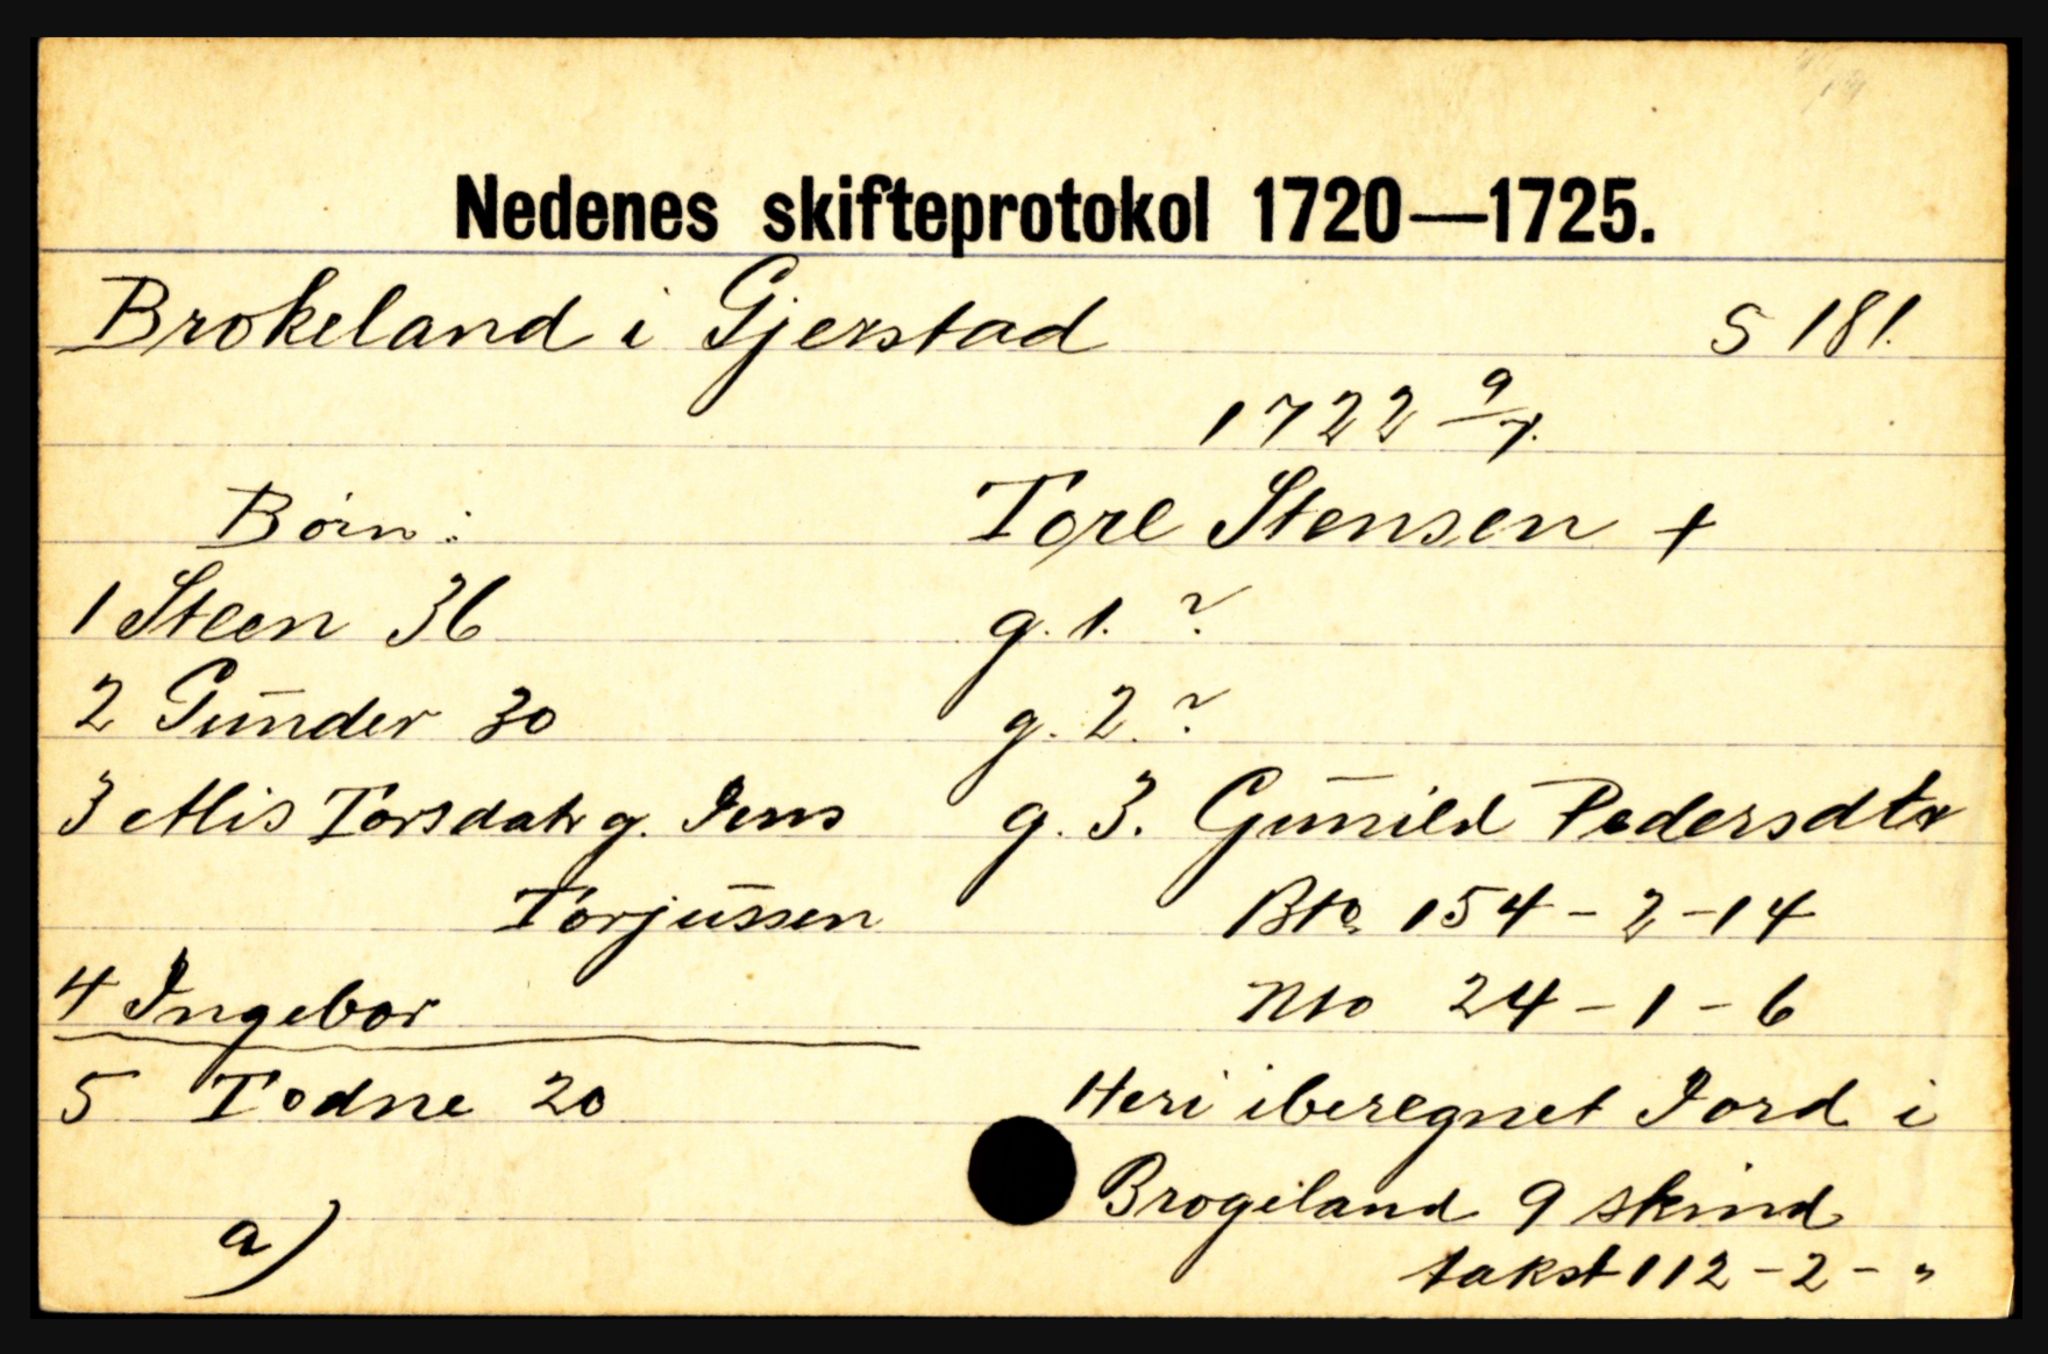 Nedenes skifteprotokol 1720—1725.
Brokeland i Gjerstad S 181.
1722 9/7.
Børn:
Tore Stensen +
1 Steen 36
g. 1. ?
2 Gunder 30
g. 2. ?
3 Alis Torsdatr g. Jens
Torjussen
g. 3. Gunild Pedersdtr
Bto 154-2-14
4 Ingebor
Nto 24-1-6
5 Todne 20
Heri iberegnet Jord i
Brogeland 9 skind
takst 112-2-"
a)